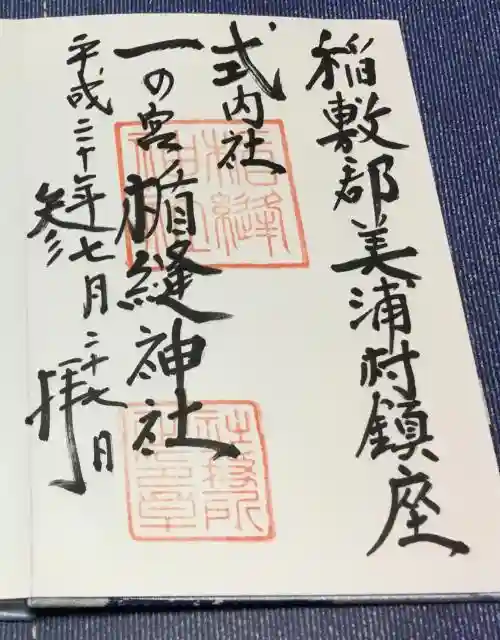 稲敷郡美浦村鎮座
式内社
一の宮楯縫神社
平成二十年七月二十七日
参拝
楯縫神社